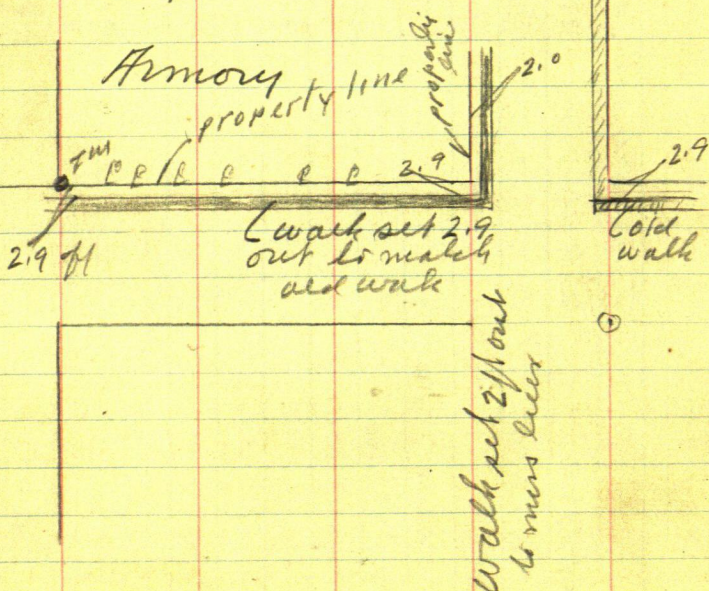 Armory
property line
property
line
2.0
2.9
2.9
2.9 ft
walk set 2.9
out to match
old walk
old
walk
walk set 2 ft out
to miss